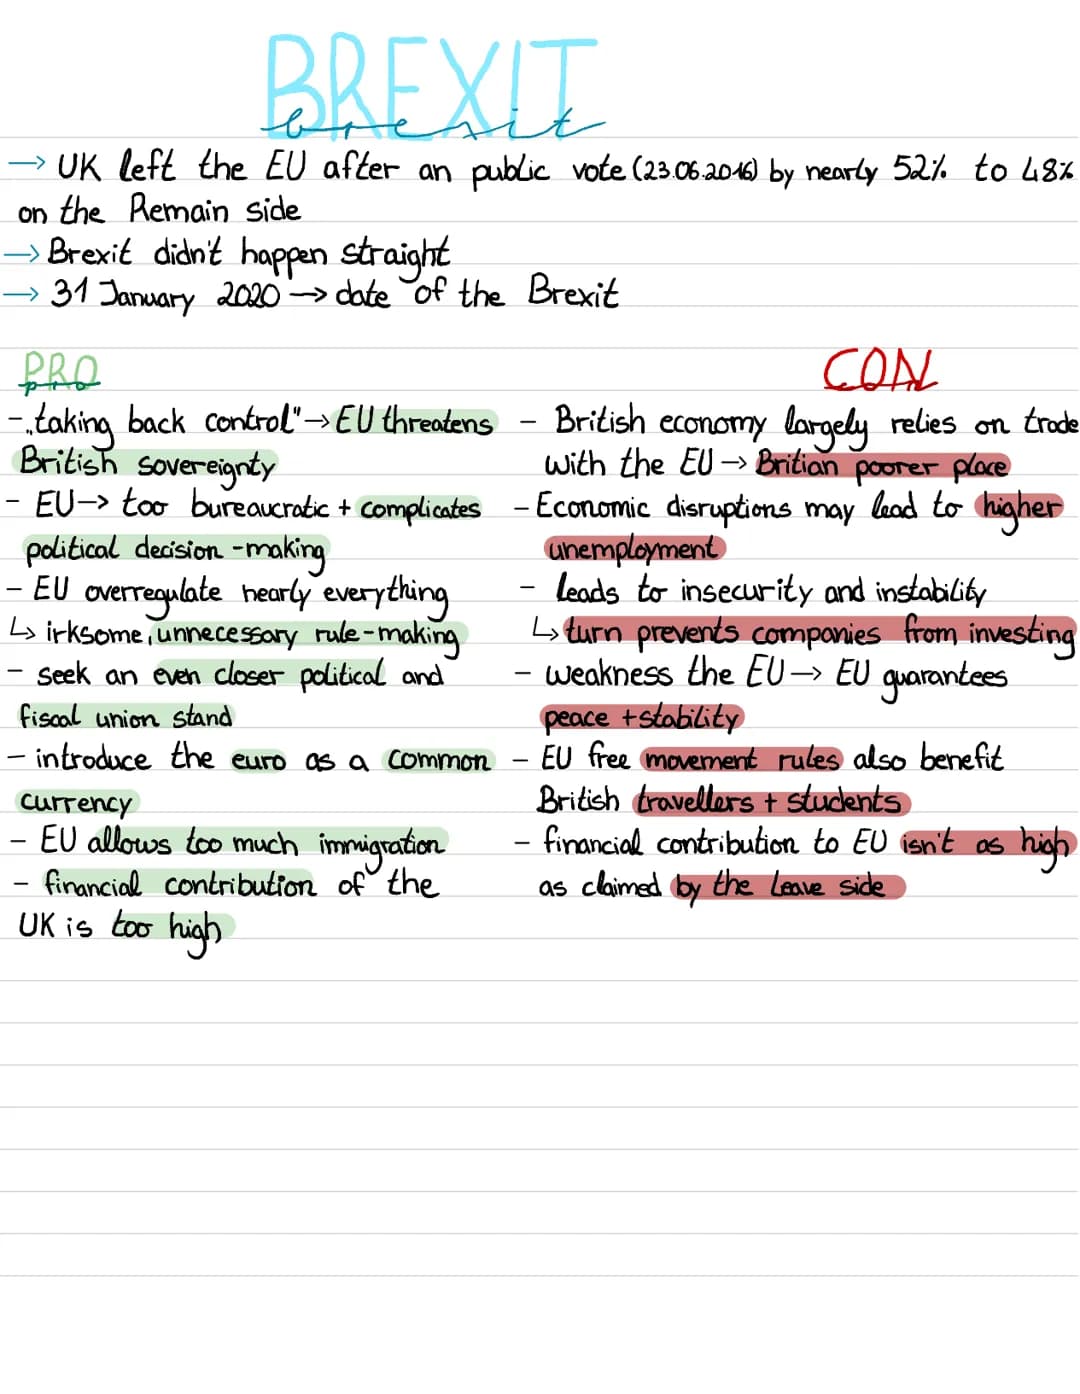 BREXIT
brexit
→ UK left the EU after an public vote (23.06.2016) by nearly 52% to 48%
on the Remain side
→ Brexit didn't happen straight
→ 31 January 2020 → date of the Brexit
PRO
pro
- „taking back control" → EU threatens
British sovereignty
- EU → too bureaucratic + complicates
political decision-making
- EU overregulate nearly everything
↳ irksome, unnecessary rule-making
- seek an even closer political and
fiscal union stand
- introduce the euro as a common
currency
- EU allows too much immigration
- financial contribution of the
UK is too high
CON
- British economy largely relies on trade
with the EU → Britian poorer place
- Economic disruptions may lead to higher
unemployment
- leads to insecurity and instability
↳ turn prevents companies from investing
- weakness the EU → EU guarantees
peace + stability
- EU free movement rules also benefit
British travellers + students
- financial contribution to EU isn't as high
as claimed by the Leave side